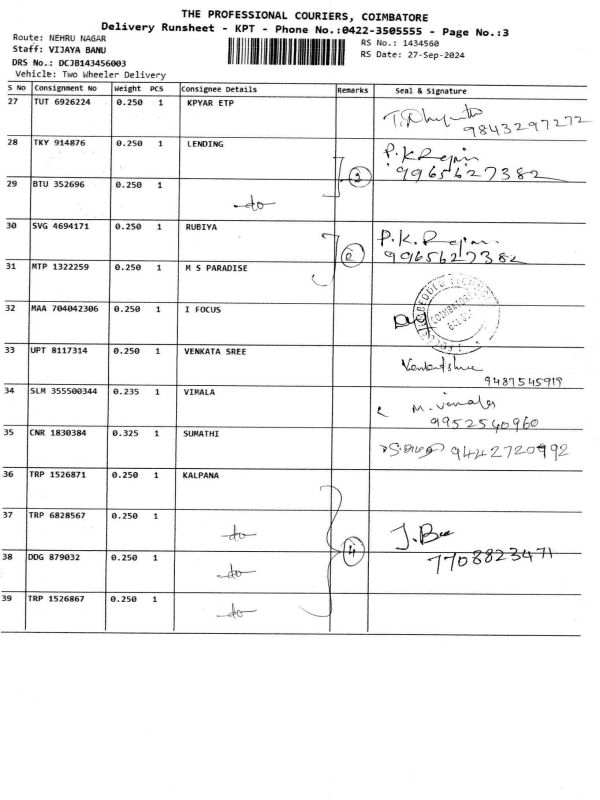 THE PROFESSIONAL COURIERS, COIMBATORE
Delivery Runsheet - KPT - Phone No.:0422-3505555 - Page No.:3
Route: NEHRU NAGAR
RS No.: 1434560
Staff: VIJAYA BANU
RS Date: 27-Sep-2024
DRS No.: DCJB143456003
Vehicle: Two Wheeler Delivery
S No Consignment No Weight PCS Consignee Details Remarks Seal & Signature
27 TUT 6926224 0.250 1 KPYAR ETP
9843297272
28 TKY 914876 0.250 1 LENDING P.K Rajan
9965627382
29 BTU 352696 0.250 1 do
30 SVG 4694171 0.250 1 RUBIYA P.K. Rajan
2 9965627382
31 MTP 1322259 0.250 1 M S PARADISE
32 MAA 704042306 0.250 1 I FOCUS
33 UPT 8117314 0.250 1 VENKATA SREE Venkatshree
9487545919
34 SLM 355500344 0.235 1 VIMALA M. Vimala
9952540960
35 CNR 1830384 0.325 1 SUMATHI 9442720992
36 TRP 1526871 0.250 1 KALPANA
37 TRP 6828567 0.250 1 do
4 7708823471
38 DDG 879032 0.250 1 do
39 TRP 1526867 0.250 1 do